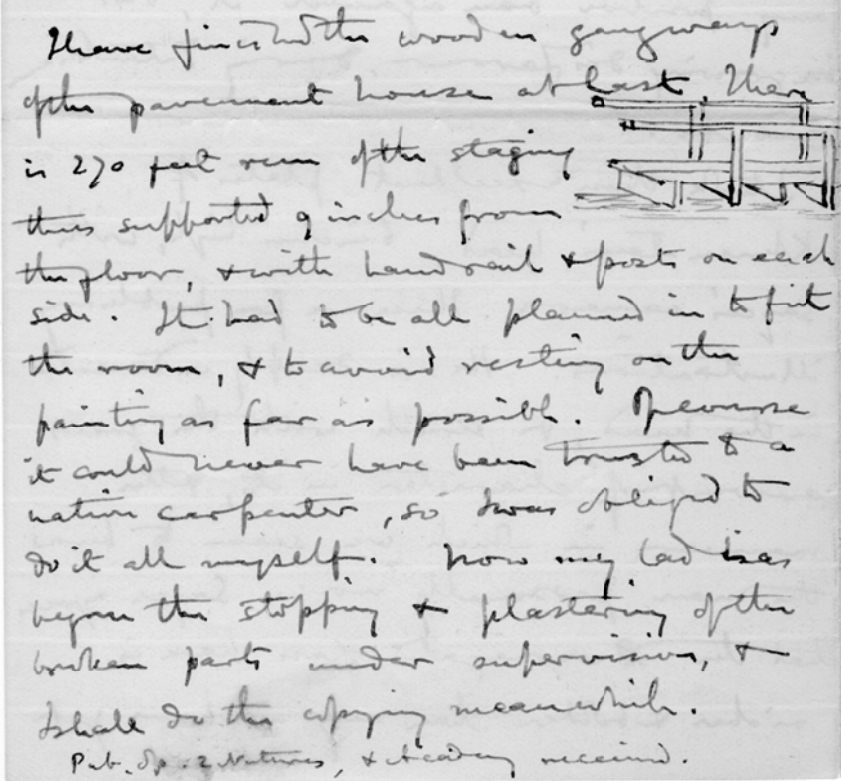 I have finished the wooden gangways
of the pavement house at last. There
is 270 feet run of the staging
thus supported 9 inches from
the floor, & with hand rail & posts on each
side. It had to be all planned in to fit
the room, & to avoid resting on the
painting as far as possible. Of course
it could never have been trusted to a
native carpenter, so I was obliged to
do it all myself. Now my lad has
begun the stopping & plastering of the
broken parts under supervision, &
I shall do the copying meanwhile.
Pub. Op. 2 Natures, & Academy received.